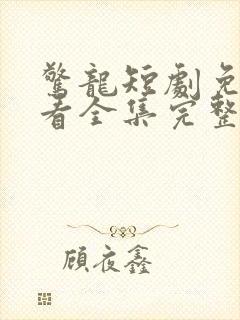 驚龍短劇免
看全集完整
顧夜鑫